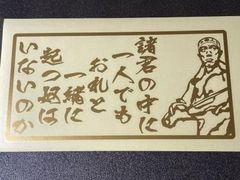 諸君の中に
一人でも
おれと
一緒に
起つ奴は
いないのか